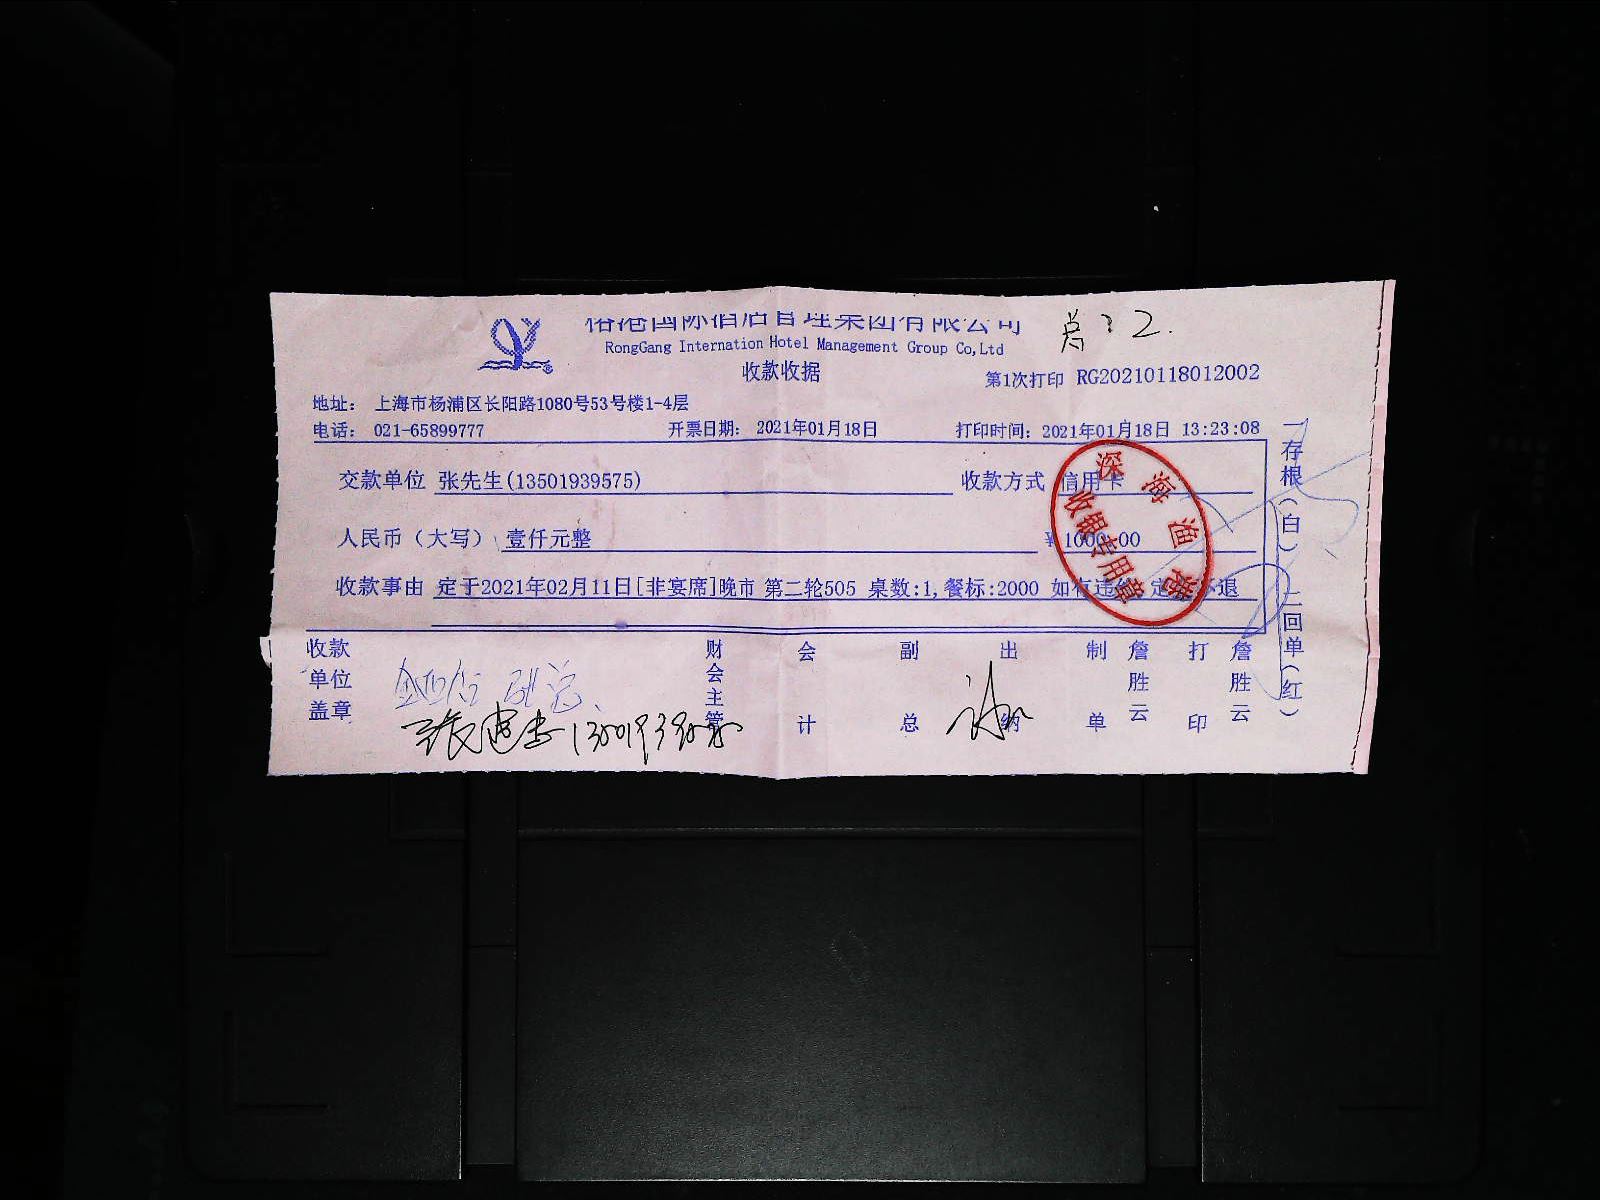 榕港国际酒店管理集团有限公司
总：2.
RongGang Internation Hotel Management Group Co,Ltd
收款收据
第1次打印 RG20210118012002
地址： 上海市杨浦区长阳路1080号53号楼1-4层
电话： 021-65899777 开票日期： 2021年01月18日 打印时间：2021年01月18日 13:23:08
交款单位 张先生(13501939575) 收款方式 信用卡
人民币（大写） 壹仟元整 ¥ 1000.00
收款事由 定于2021年02月11日[非宴席]晚市 第二轮505 桌数:1,餐标:2000 如有违约 定金不退
深海渔港
收银专用章
一存根（白）二回单（红）
收款单位盖章
财会主管
会计
副总
出纳
制单
詹胜云
打印
詹胜云